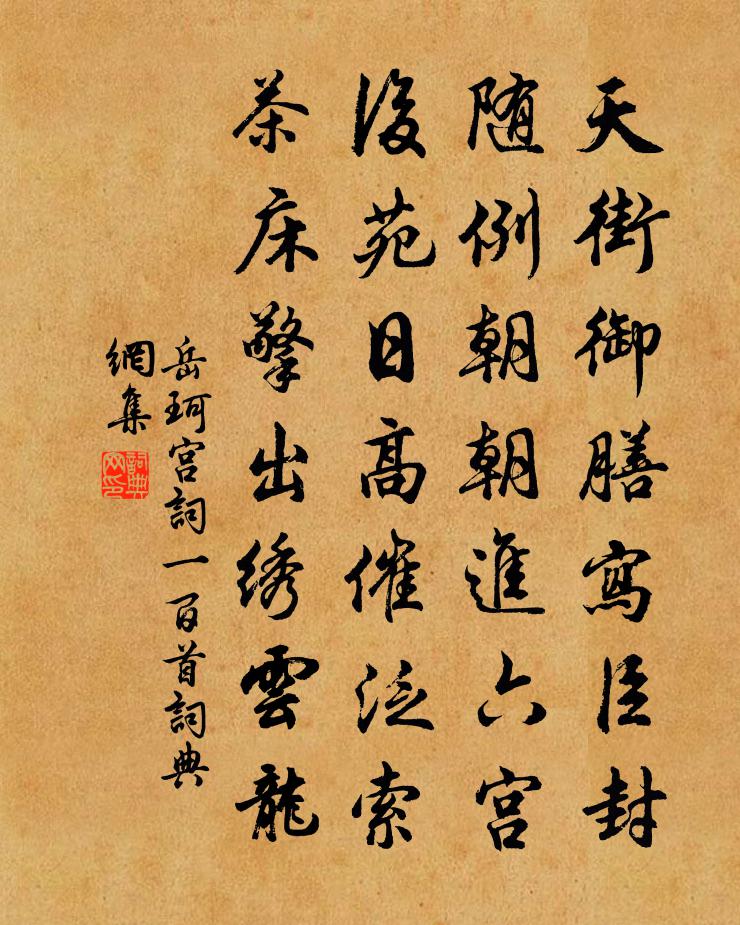 天街御膳寫臣封
随例朝朝進六宮
後苑日高催泛索
茶床擎出綉雲龍
岳珂宮詞一百首詞典
網集
詞典網印